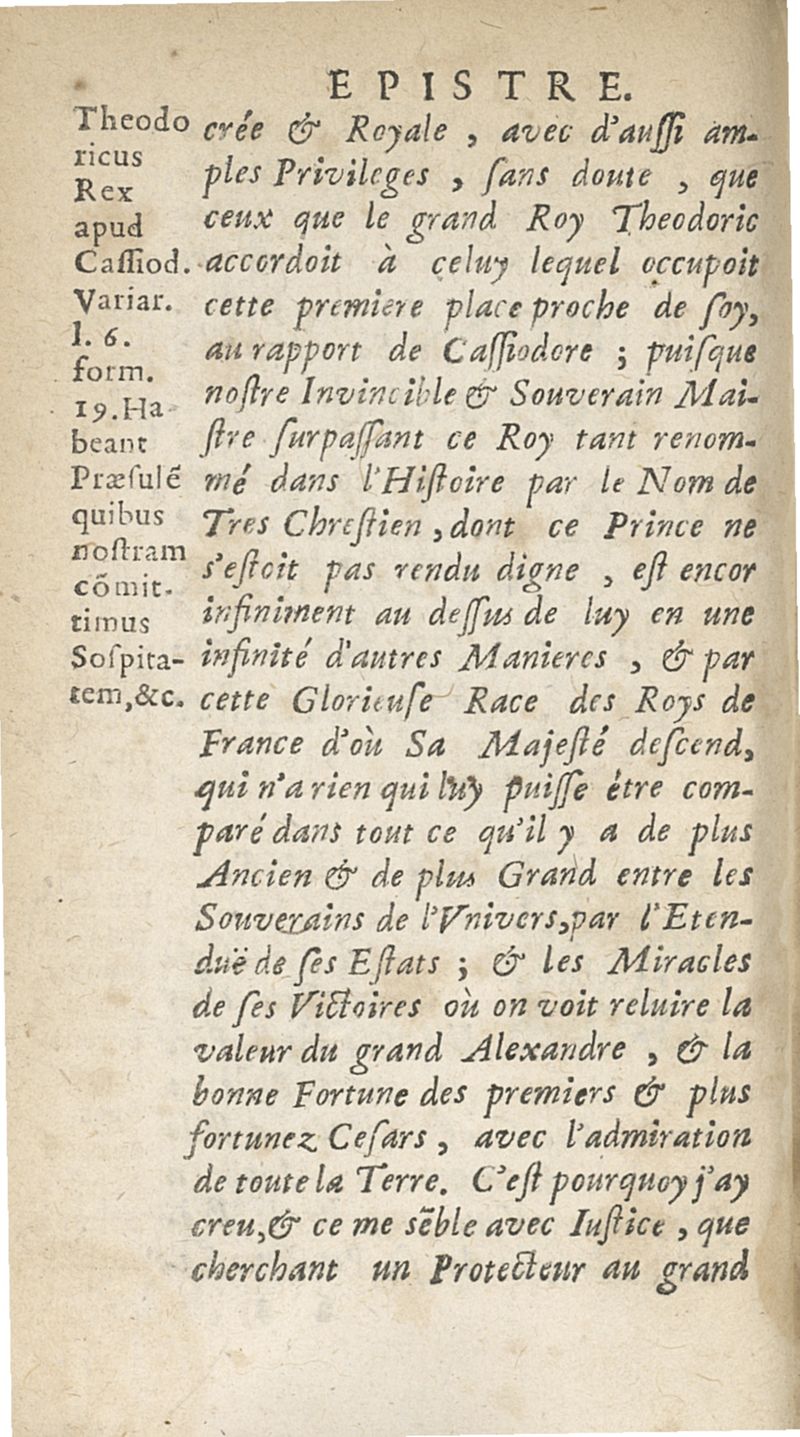 EPISTRE.
Theodo
ricus
Rex
apud
Caſſiod.
Variar.
l. 6.
form.
19. Ha-
beant
Præſulẽ
quibus
noſtram
cõmit-
timus
Soſpita-
tem, &c.
crée & Royale, avec d'auſſi am-
ples Privileges, ſans doute, que
ceux que le grand Roy Theodoric
accordoit à celuy lequel occupoit
cette premiere place proche de ſoy,
au rapport de Caſſiodore ; puiſque
noſtre Invincible & Souverain Mai-
ſtre ſurpaſſant ce Roy tant renom-
mé dans l'Hiſtoire par le Nom de
Tres Chreſtien, dont ce Prince ne
s'eſtoit pas rendu digne, eſt encor
infiniment au deſſus de luy en une
infinité d'autres Manieres, & par
cette Glorieuſe Race des Roys de
France d'où Sa Majeſté deſcend,
qui n'a rien qui luy puiſſe étre com-
paré dans tout ce qu'il y a de plus
Ancien & de plus Grand entre les
Souverains de l'Vnivers, par l'Eten-
duë de ſes Eſtats ; & les Miracles
de ſes Victoires où on voit reluire la
valeur du grand Alexandre, & la
bonne Fortune des premiers & plus
fortunez Ceſars, avec l'admiration
de toute la Terre. C'eſt pourquoy j'ay
creu, & ce me sẽble avec Iuſtice, que
cherchant un Protecteur au grand